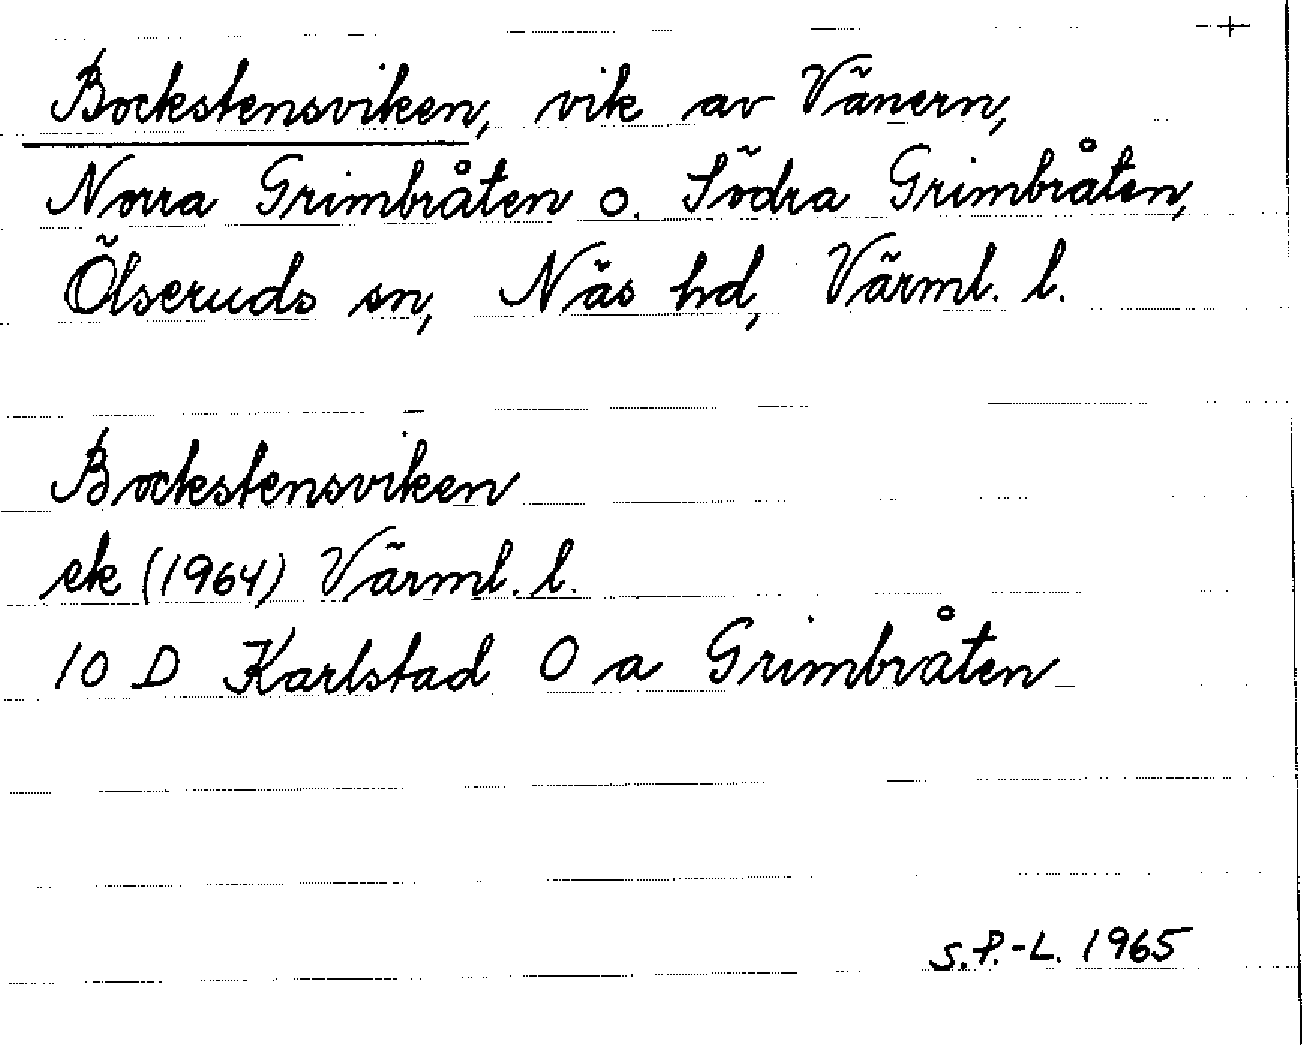 +
Bockstensviken, vik av Vänern,
Norra Grimbråten o. Södra Grimbråten,
Ölseruds sn, Näs hd, Värml. l.
Bockstensviken
ek (1964) Värml. l.
10 D Karlstad O a Grimbråten
S.P.-L. 1965